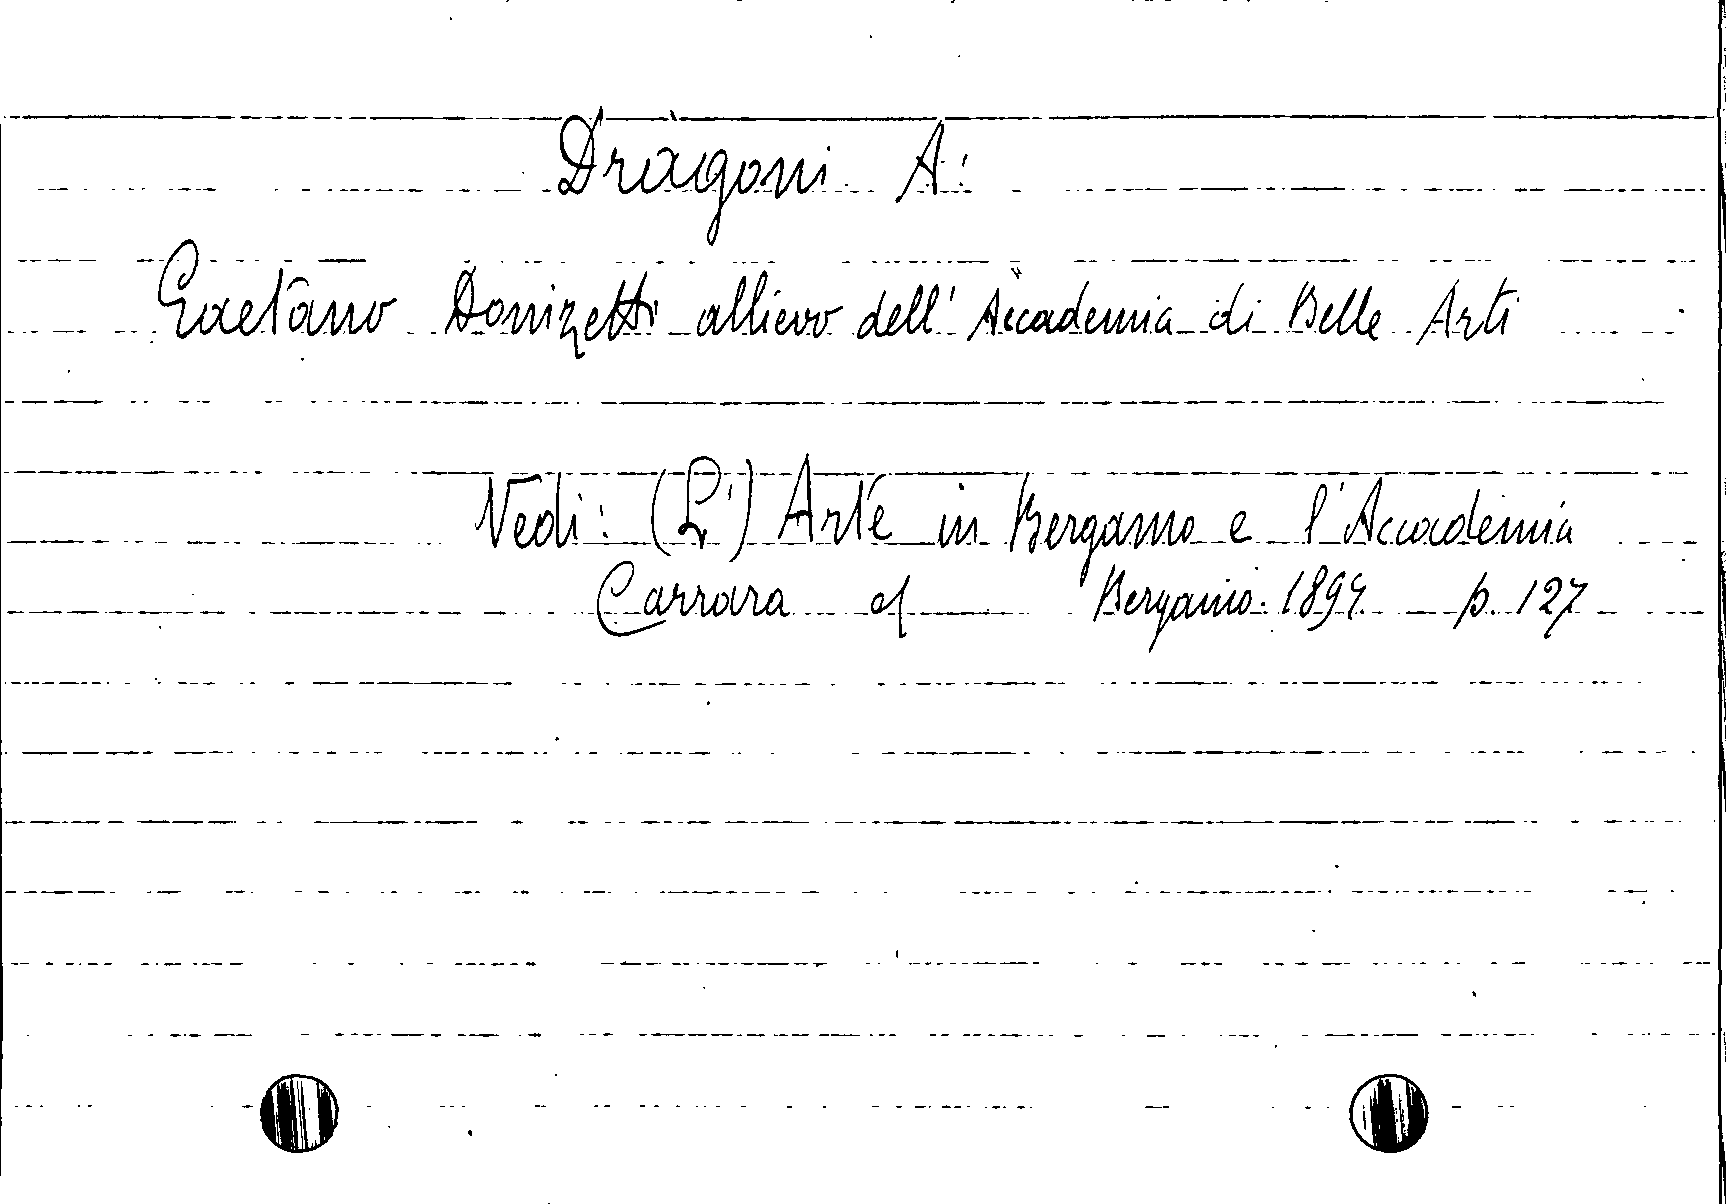 Dragoni A:
Gaetano Donizetti allievo dell' Accademia di Belle Arti
Vedi: (L') Arte in Bergamo e l'Accademia
Carrara Bergamo. 1897 p. 127